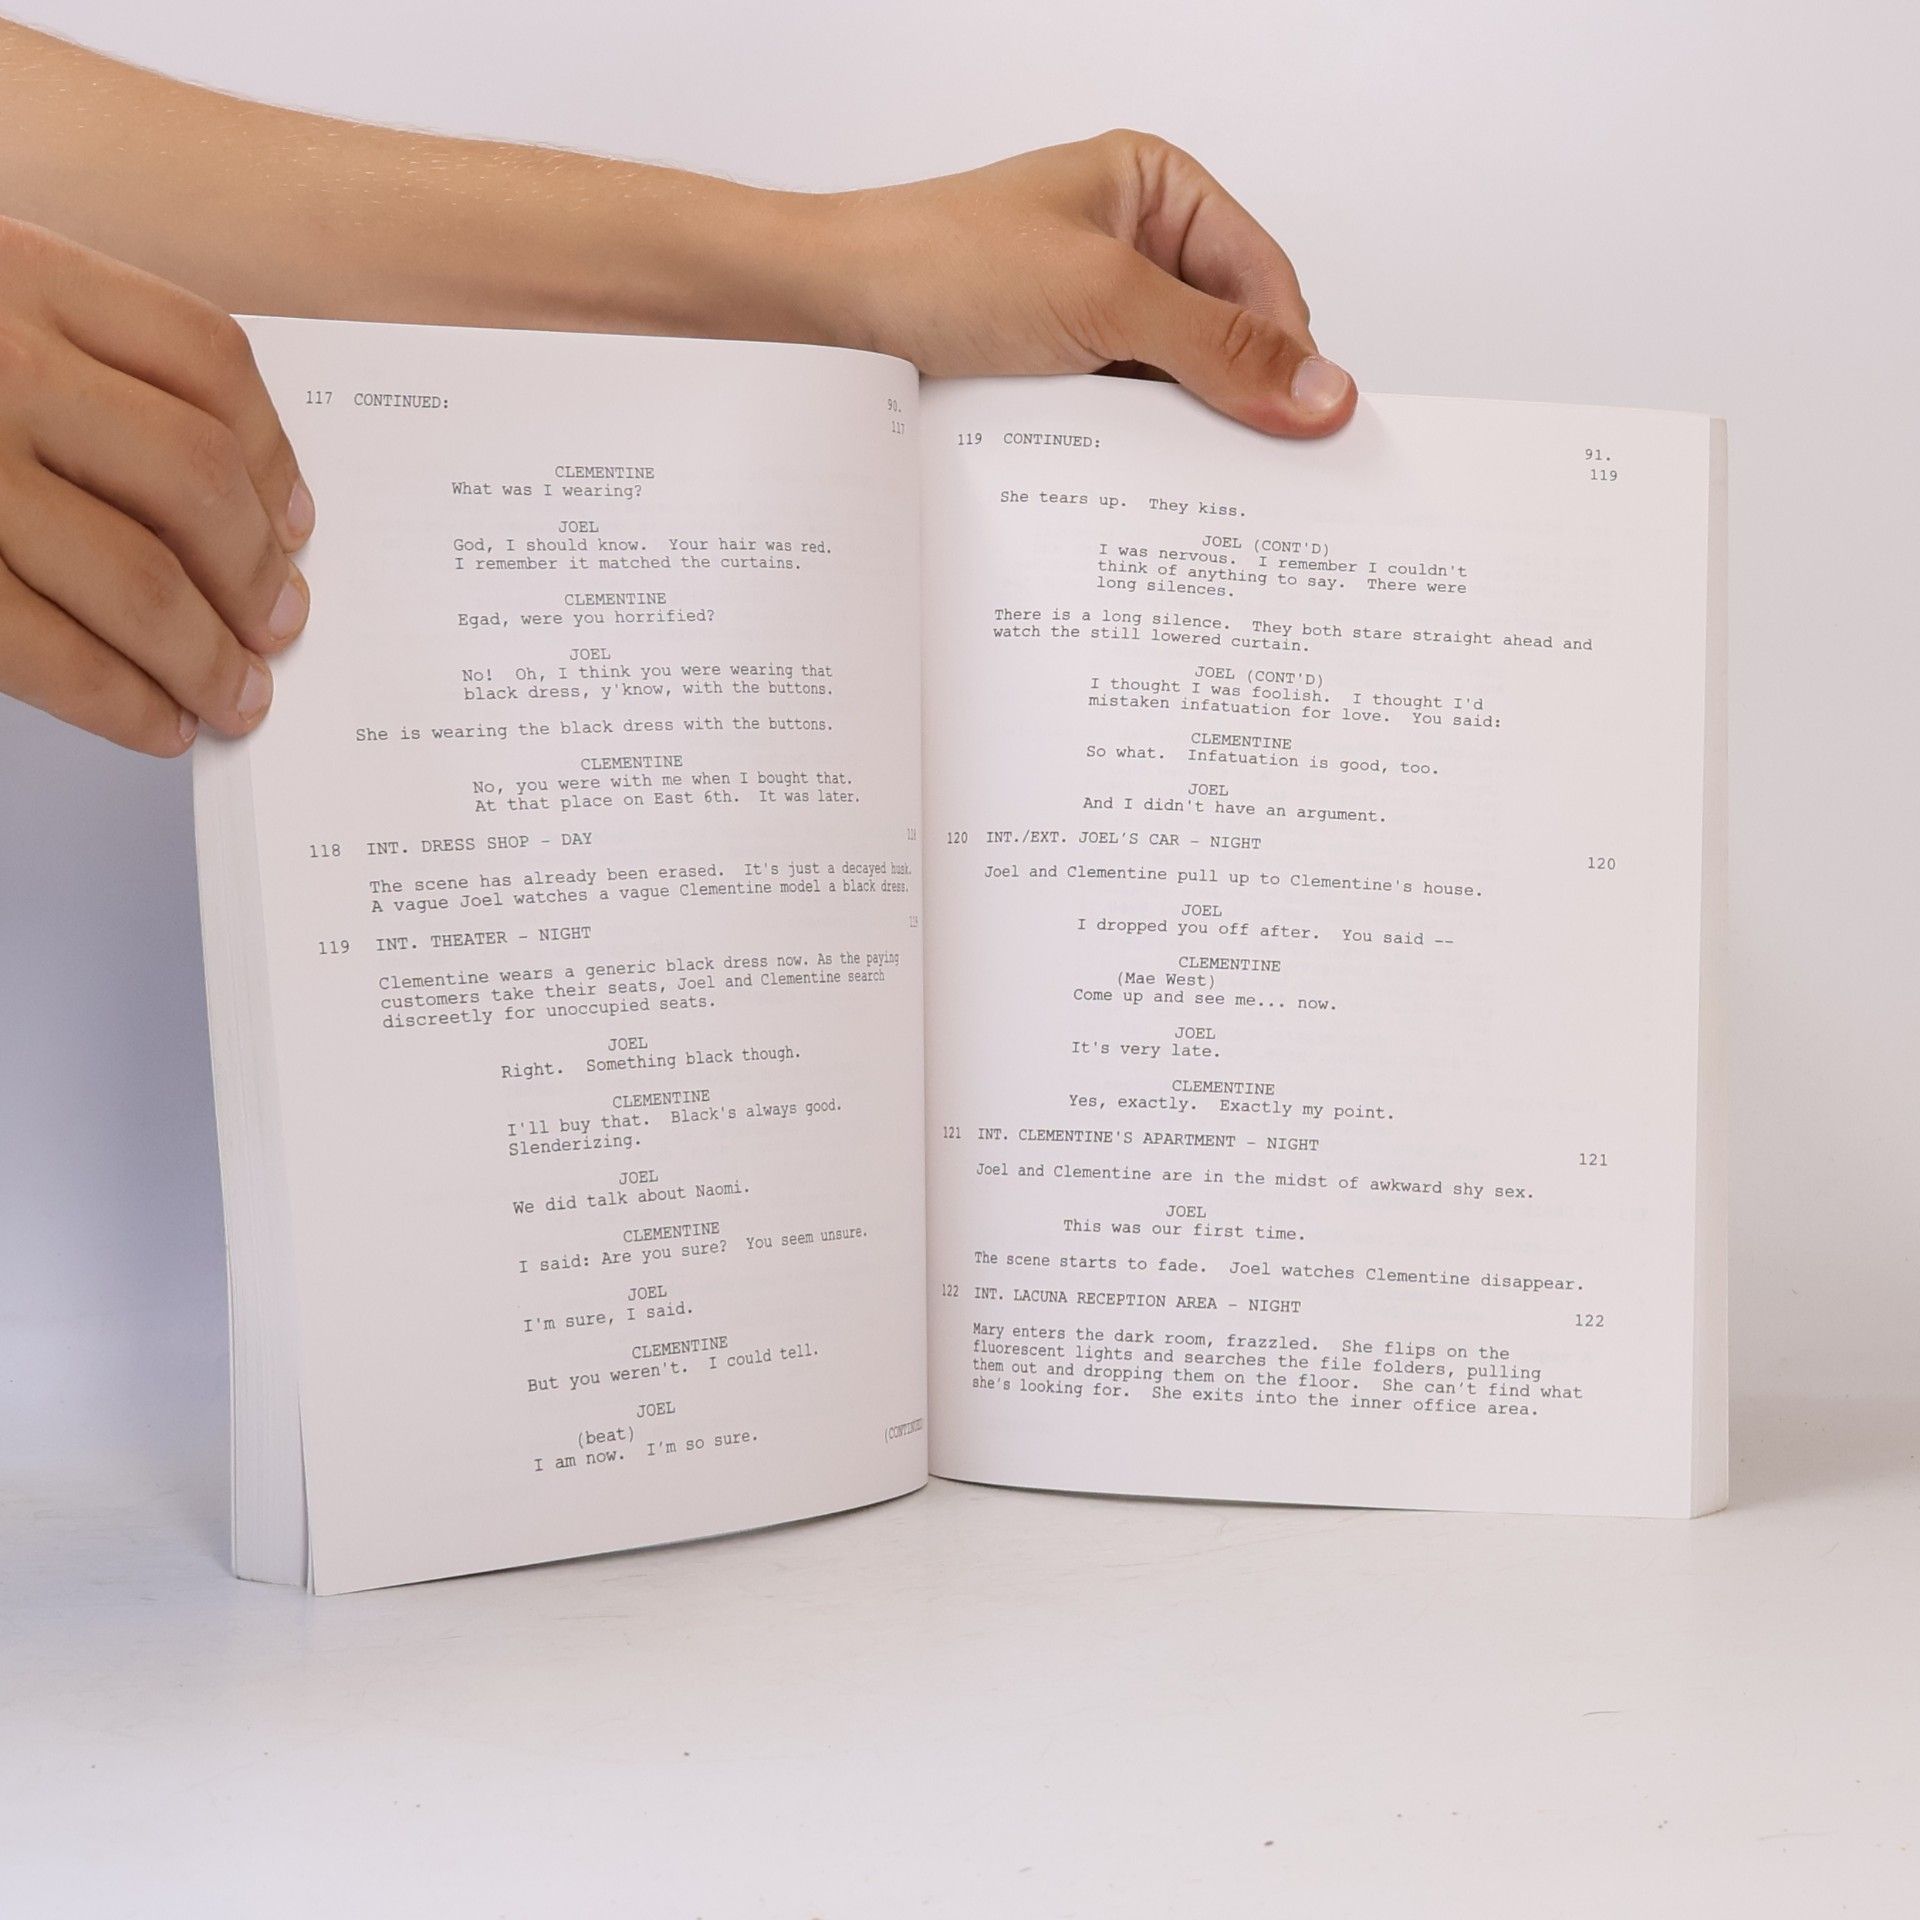 117 CONTINUED:
90.
117
CLEMENTINE
What was I wearing?
JOEL
God, I should know. Your hair was red.
I remember it matched the curtains.
CLEMENTINE
Egad, were you horrified?
JOEL
No! Oh, I think you were wearing that
black dress, y'know, with the buttons.
She is wearing the black dress with the buttons.
CLEMENTINE
No, you were with me when I bought that.
At that place on East 6th. It was later.
118 INT. DRESS SHOP - DAY 118
The scene has already been erased. It's just a decayed husk.
A vague Joel watches a vague Clementine model a black dress.
119 INT. THEATER - NIGHT 119
Clementine wears a generic black dress now. As the paying
customers take their seats, Joel and Clementine search
discreetly for unoccupied seats.
JOEL
Right. Something black though.
CLEMENTINE
I'll buy that. Black's always good.
Slenderizing.
JOEL
We did talk about Naomi.
CLEMENTINE
I said: Are you sure? You seem unsure.
JOEL
I'm sure, I said.
CLEMENTINE
But you weren't. I could tell.
JOEL
(beat)
I am now. I'm so sure.
(CONTINUED
119 CONTINUED:
91.
119
She tears up. They kiss.
JOEL (CONT'D)
I was nervous. I remember I couldn't
think of anything to say. There were
long silences.
There is a long silence. They both stare straight ahead and
watch the still lowered curtain.
JOEL (CONT'D)
I thought I was foolish. I thought I'd
mistaken infatuation for love. You said:
CLEMENTINE
So what. Infatuation is good, too.
JOEL
And I didn't have an argument.
120 INT./EXT. JOEL'S CAR - NIGHT 120
Joel and Clementine pull up to Clementine's house.
JOEL
I dropped you off after. You said --
CLEMENTINE
(Mae West)
Come up and see me... now.
JOEL
It's very late.
CLEMENTINE
Yes, exactly. Exactly my point.
121 INT. CLEMENTINE'S APARTMENT - NIGHT 121
Joel and Clementine are in the midst of awkward shy sex.
JOEL
This was our first time.
The scene starts to fade. Joel watches Clementine disappear.
122 INT. LACUNA RECEPTION AREA - NIGHT 122
Mary enters the dark room, frazzled. She flips on the
fluorescent lights and searches the file folders, pulling
them out and dropping them on the floor. She can't find what
she's looking for. She exits into the inner office area.